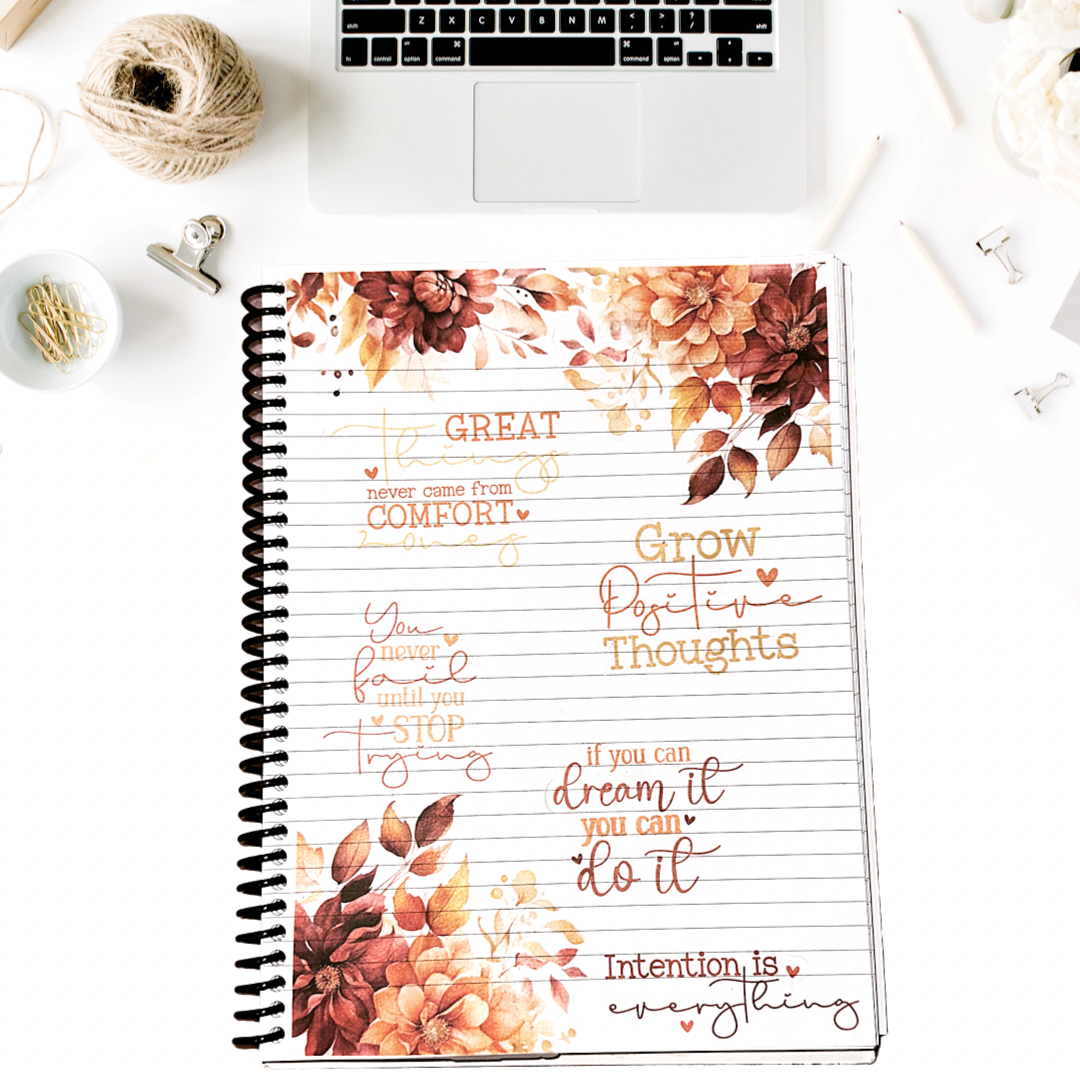 shift Z X C V B N M < , > . ? / shift
fn control alt option command command alt option
GREAT
things
never came from
COMFORT
zones
Grow
Positive
Thoughts
You
never
fail
until you
STOP
trying
if you can
dream it
you can
do it
Intention is
everything